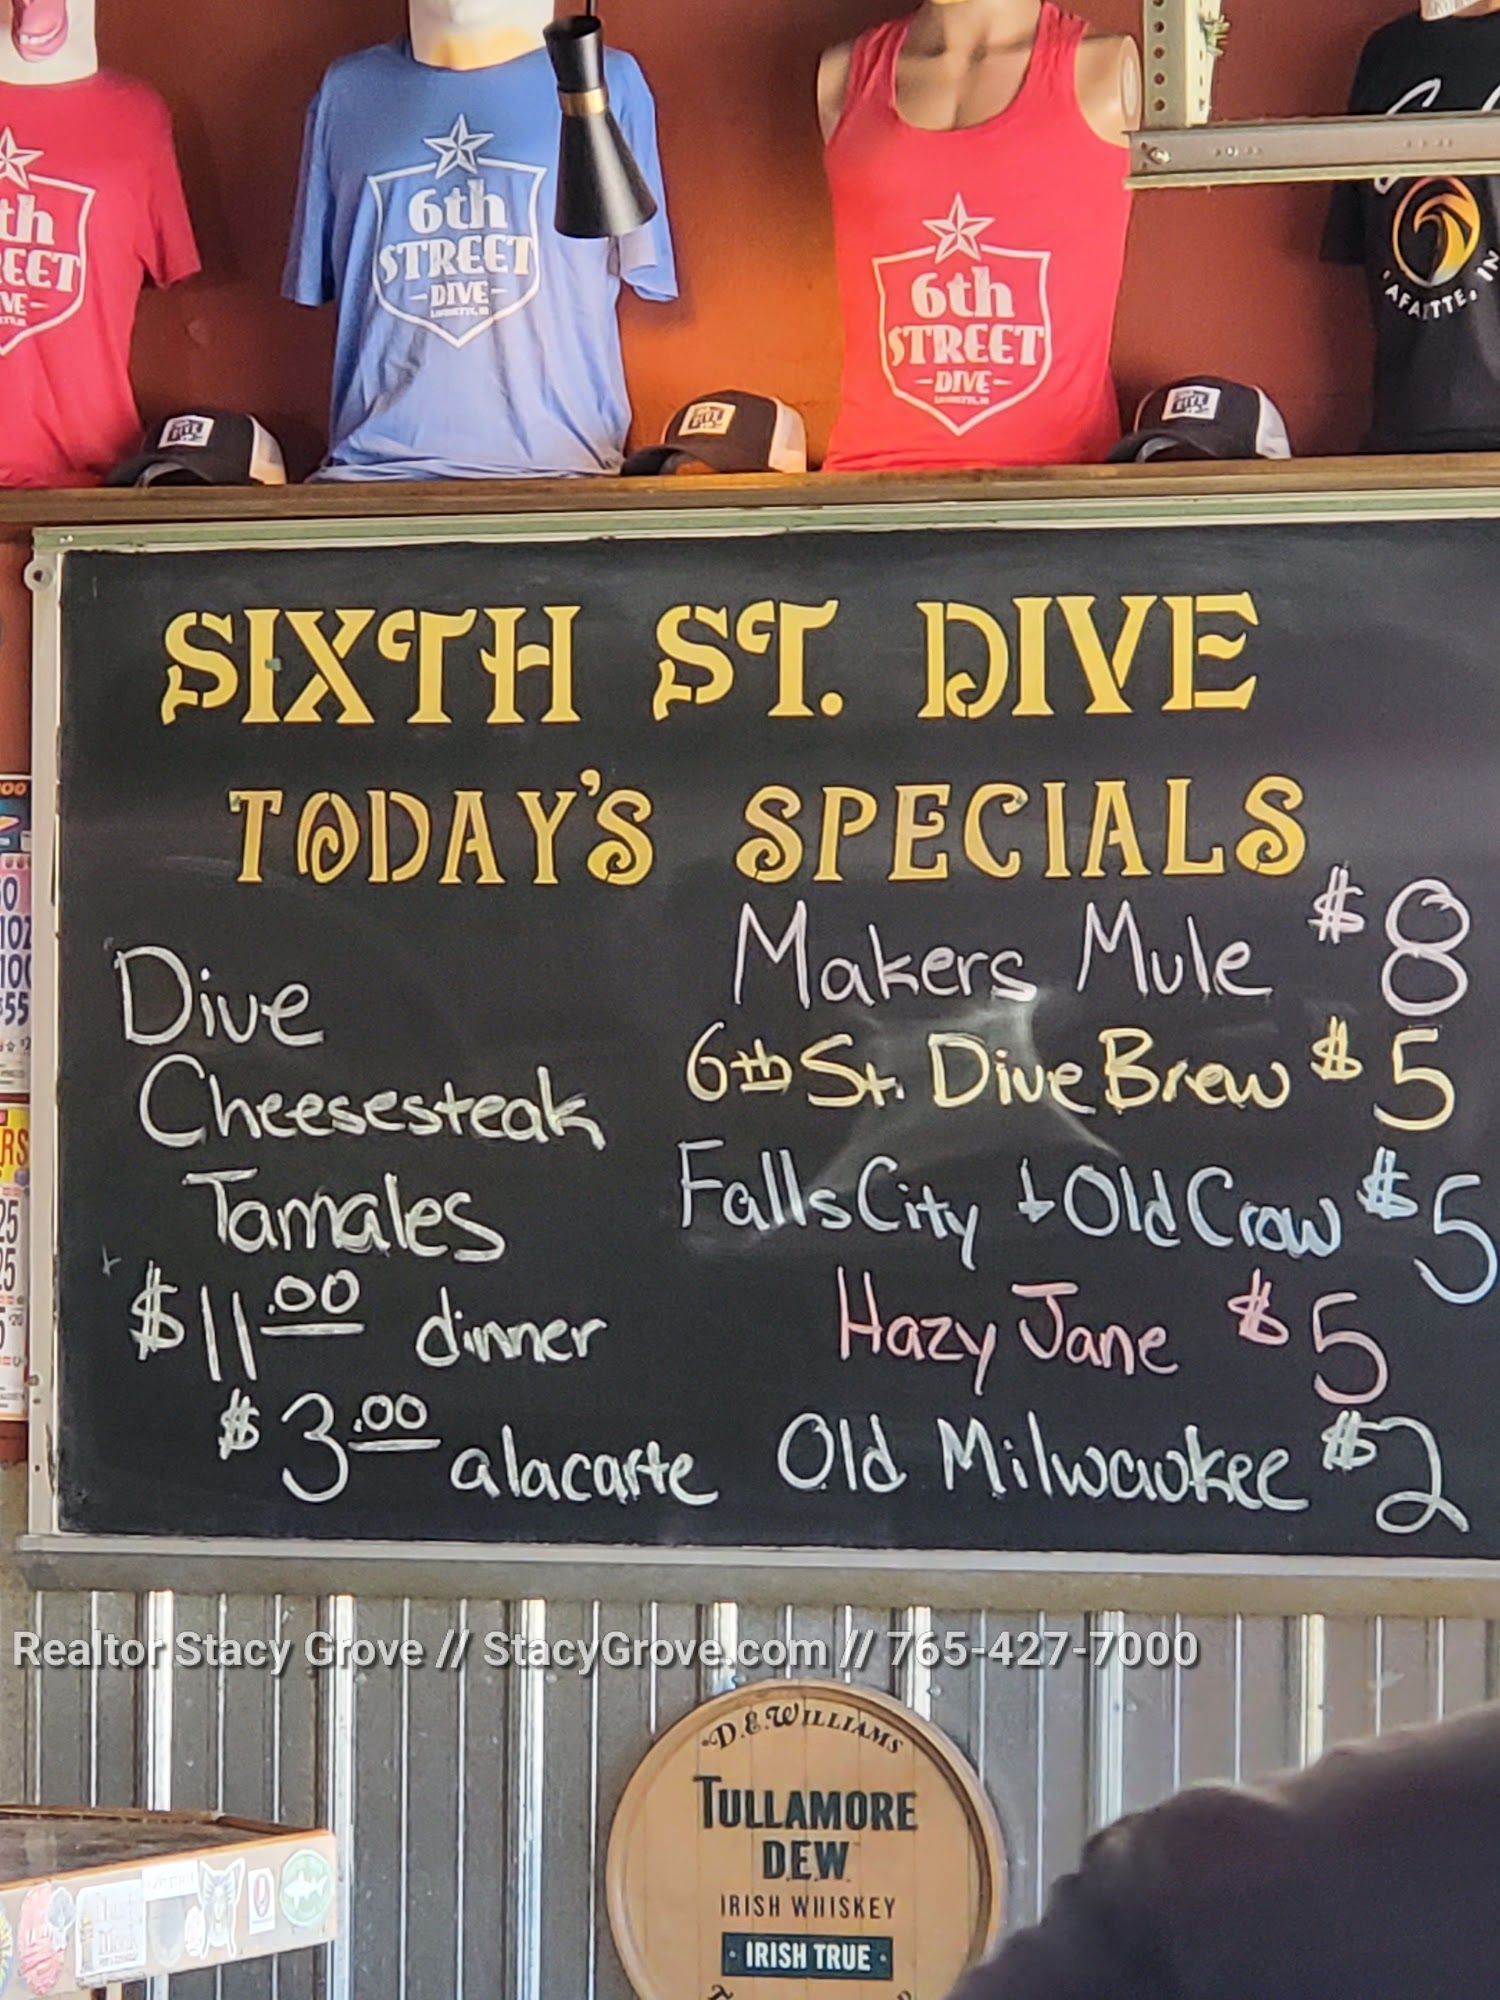 6th
STREET
DIVE
6th
STREET
DIVE
SIXTH ST. DIVE
TODAY'S SPECIALS
Dive
Cheesesteak
Tamales
$11.00 dinner
$3.00 alacarte
Makers Mule $8
6th St. Dive Brew $5
Falls City + Old Crow $5
Hazy Jane $5
Old Milwaukee $2
Realtor Stacy Grove // StacyGrove.com // 765-427-7000
D.E. WILLIAMS
TULLAMORE
DEW
IRISH WHISKEY
· IRISH TRUE ·